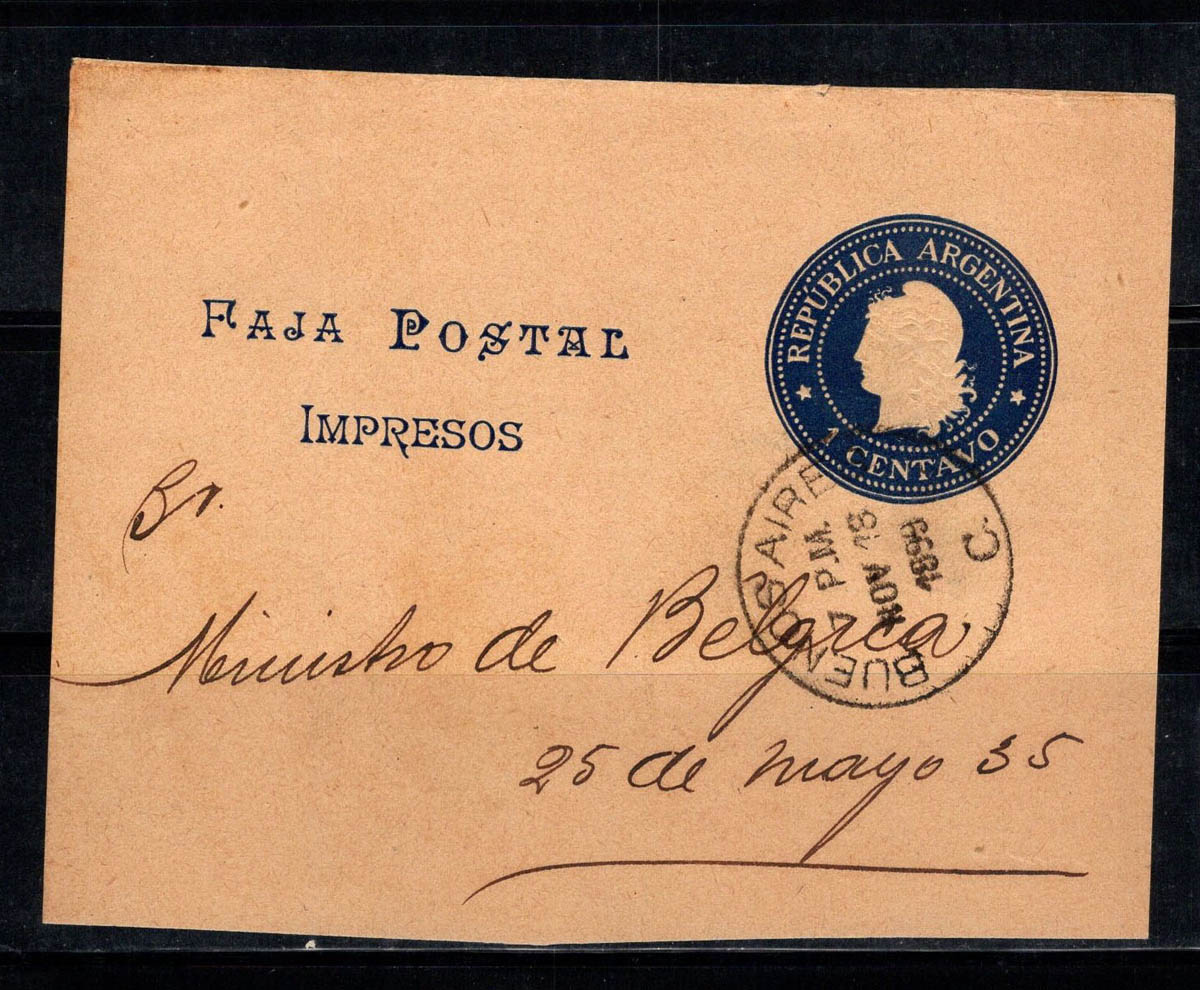 REPÚBLICA ARGENTINA
1 CENTAVO
FAJA POSTAL
IMPRESOS
BUENOS AIRES C.
7 P.M.
NOV 18
1899
Sr.
Ministro de Belgica
25 de mayo 35